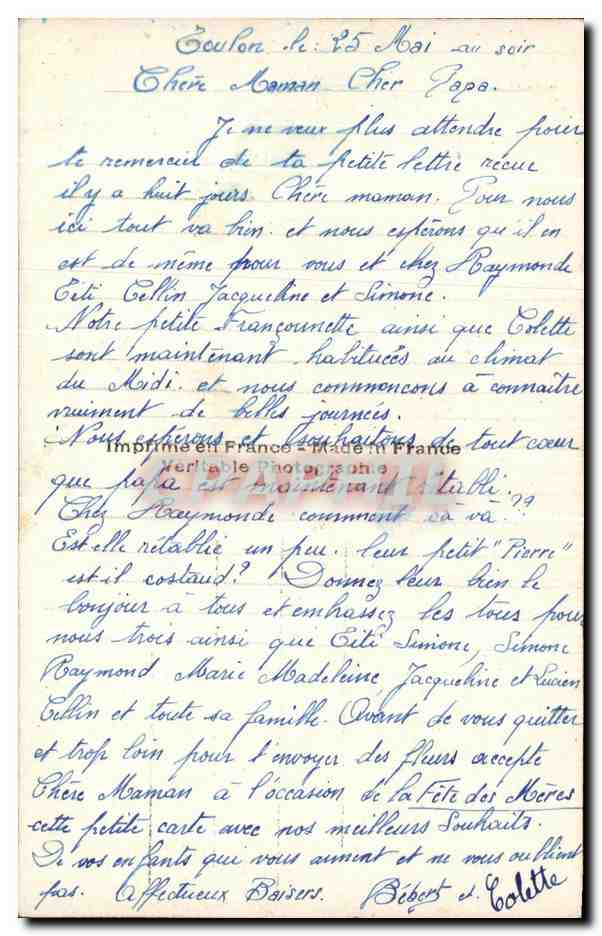 Toulon le: 25 Mai au soir
Chère Maman Cher Papa.
Je ne veux plus attendre pour
te remercier de ta petite lettre recue
il y a huit jours Chère maman. Pour nous
ici tout va bien. et nous espérons qu'il en
est de même pour vous et chez Raymonde
Titi Cellin Jacqueline et Simone.
Notre petite Françounette ainsi que Colette
sont maintenant habituées au climat
du Midi. et nous commencons à connaître
vraiment de belles journées.
Nous espérons et souhaitons de tout cœur
Imprimé en France - Made in France
Véritable Photographie
que papa est maintenant rétabli.
Chez Raymonde comment va va??
Est elle rétablie un peu. leur petit "Pierre"
est-il costaud? Donnez leur bien le
bonjour à tous et embrassez les tous pour
nous trois ainsi que Titi Simone, Simone
Raymond Marie Madeleine, Jacqueline et Lucien
Cellin et toute sa famille. Avant de vous quitter
et trop loin pour t'envoyer des fleurs accepte
Chère Maman à l'occasion de la Fête des Mères
cette petite carte avec nos meilleurs Souhaits.
De vos enfants qui vous aiment et ne vous oublient
pas. Affectueux Baisers. Bébert et Colette